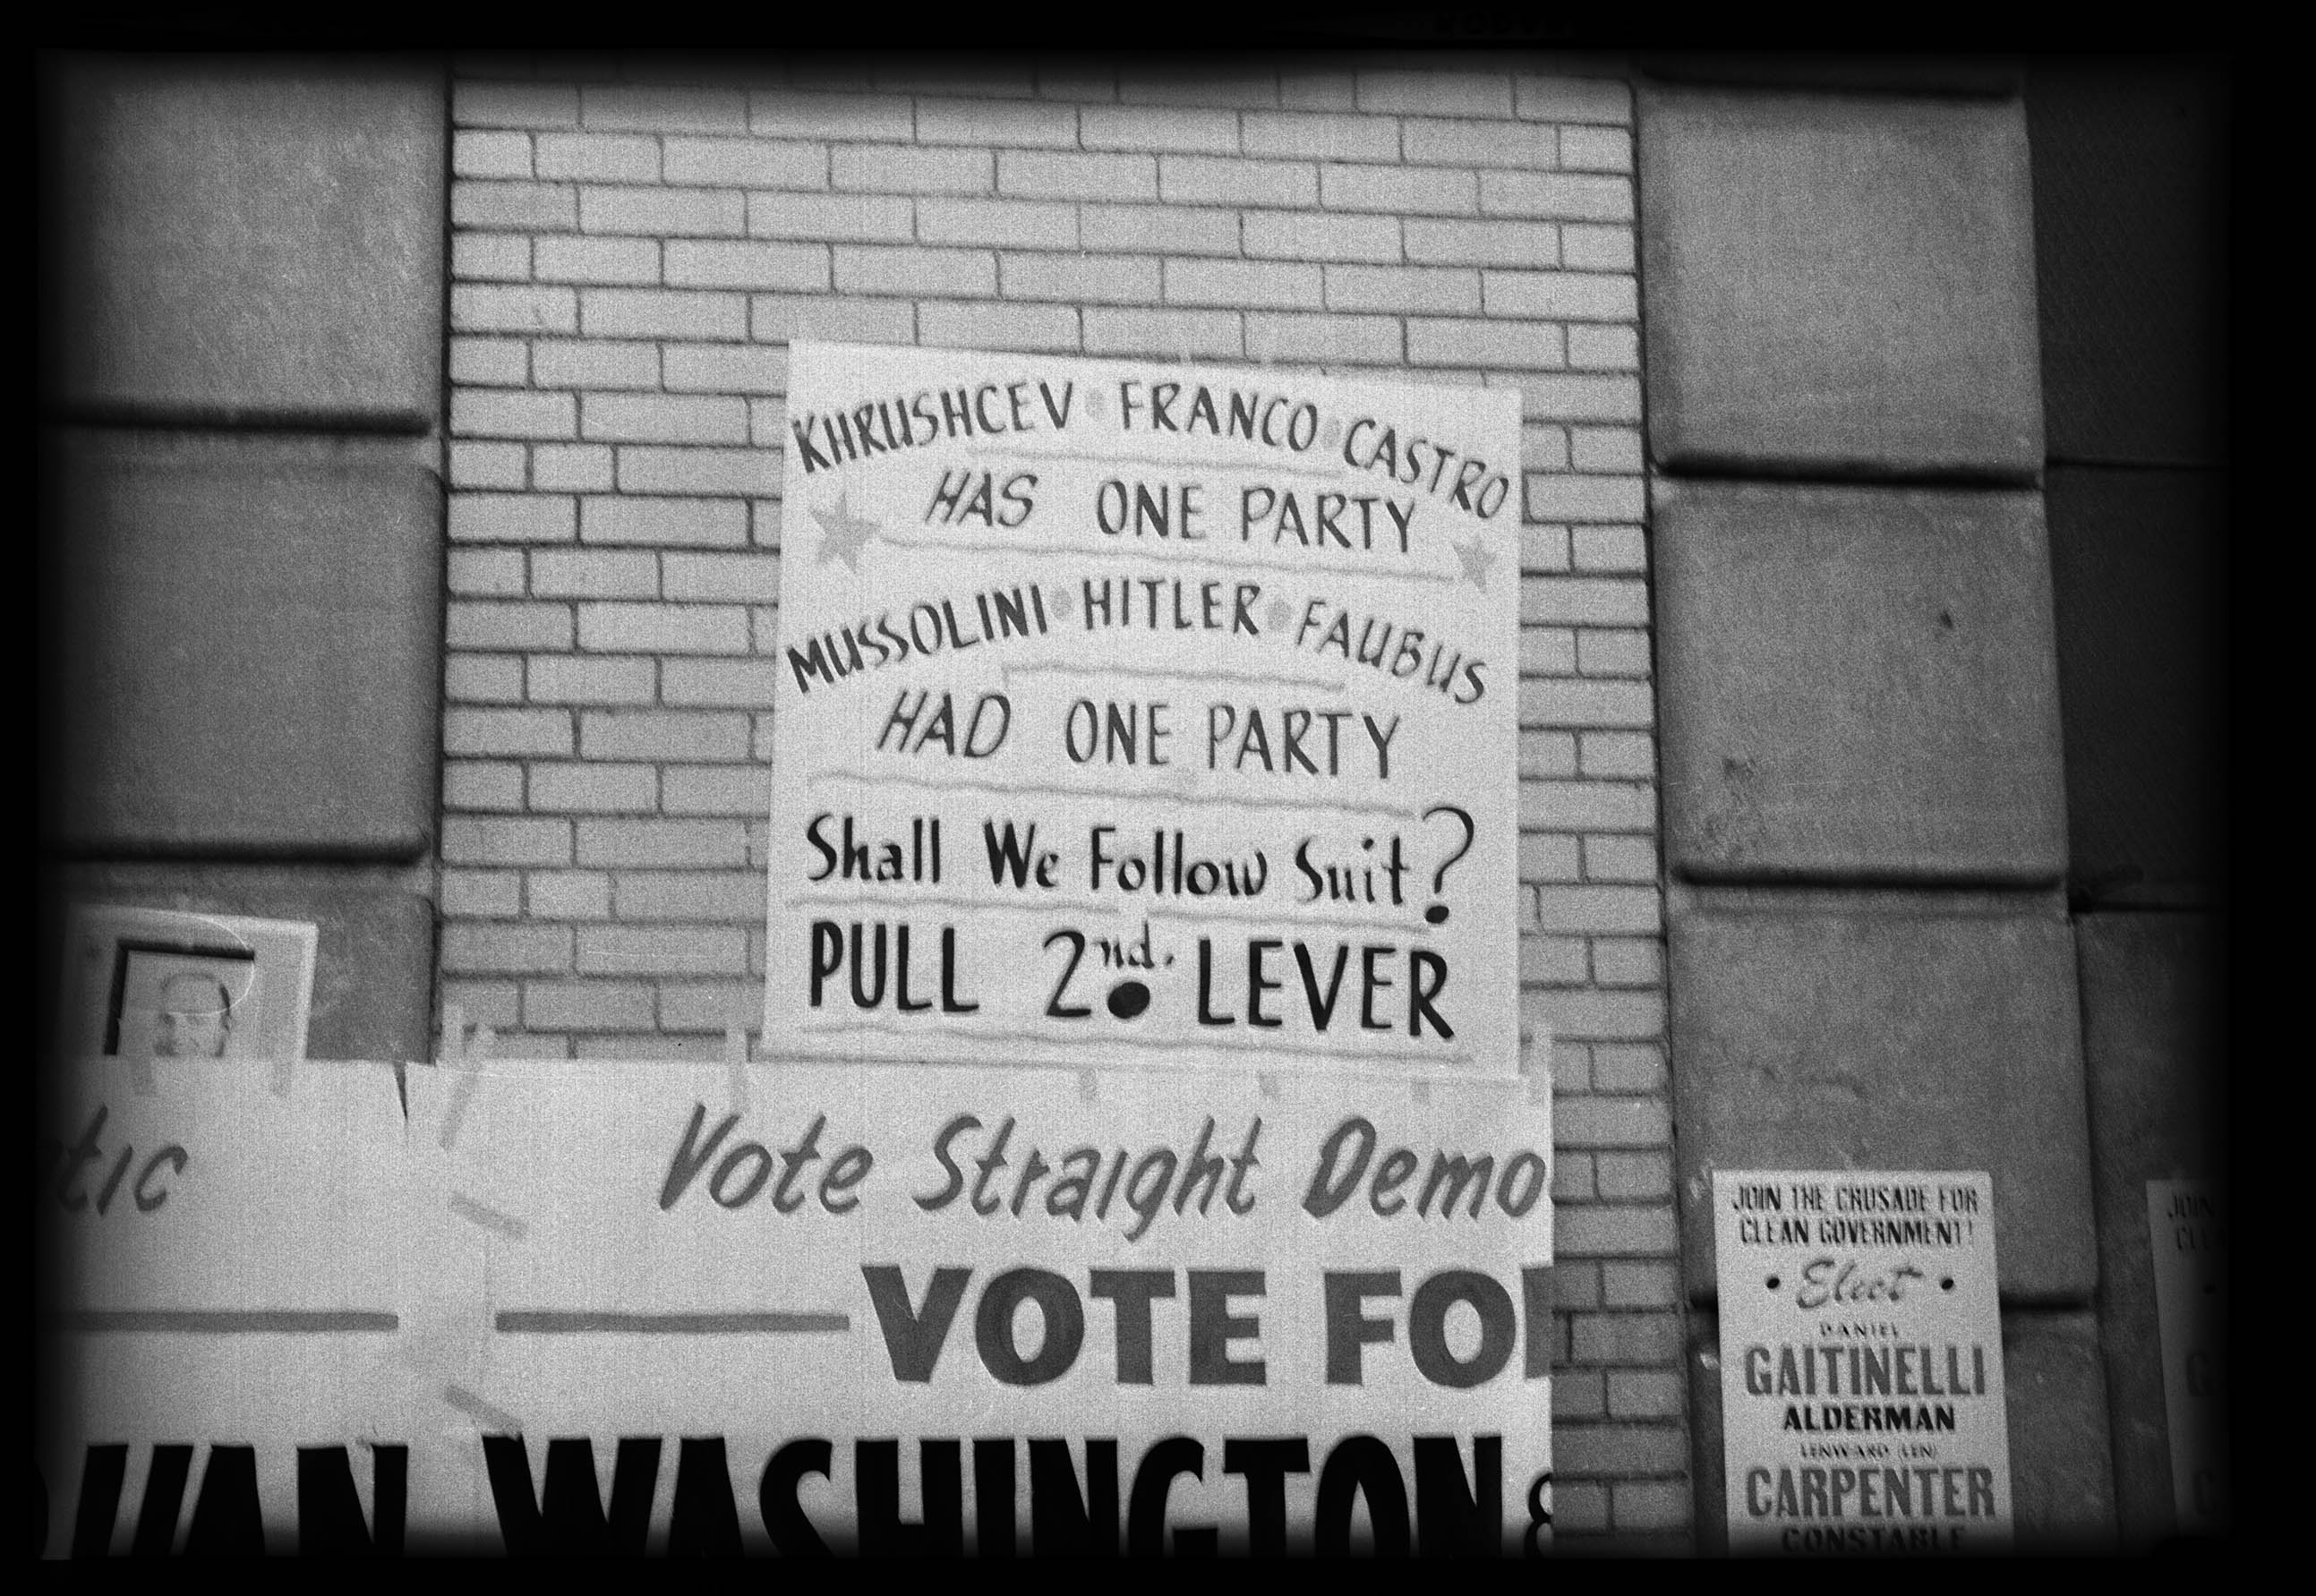 KHRUSHCEV • FRANCO • CASTRO
HAS ONE PARTY
MUSSOLINI • HITLER • FAUBUS
HAD ONE PARTY
Shall We Follow Suit?
PULL 2nd. LEVER
tic
Vote Straight Demo
VOTE FO
WASHINGTON &
JOIN THE CRUSADE FOR
CLEAN GOVERNMENT!
• Elect •
DANIEL
GAITINELLI
ALDERMAN
CARPENTER
CONSTABLE
JOIN